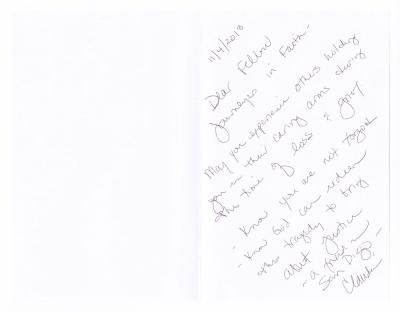 11/4/2018
Dear Fellow
Journeyers in Faith -
May you experience others holding
you in their caring arms during
this time of loss & grief
- Know you are not forgotten
- Know God can redeem
this tragedy to bring
about justice
- a friend in
San Diego -